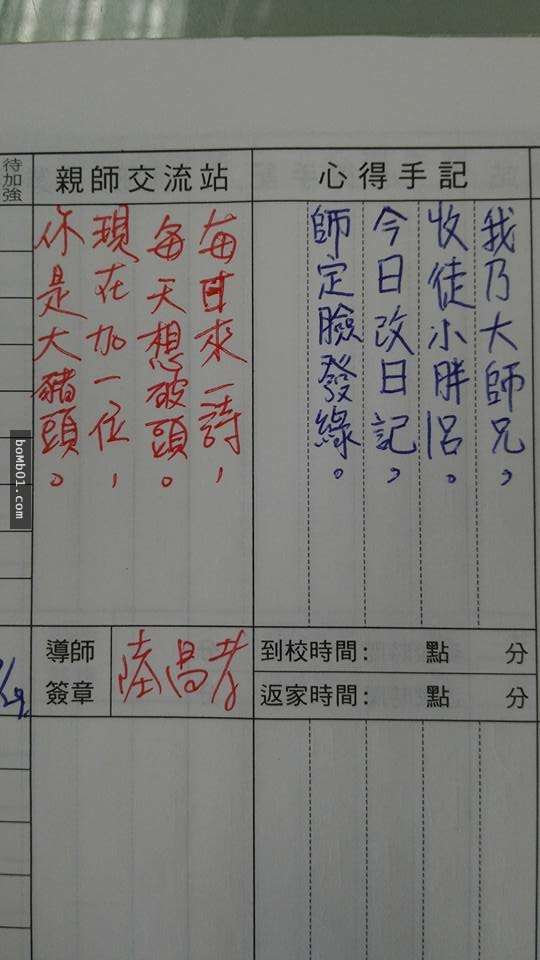 待加強
親師交流站
心得手記
我乃大師兄，
收徒小胖呂。
今日改日記，
師定臉發綠。
每日來一詩，
每天想破頭。
現在加一位，
你是大豬頭。
boMb01.com
導師
簽章
陸昌孝
到校時間： 點 分
返家時間： 點 分